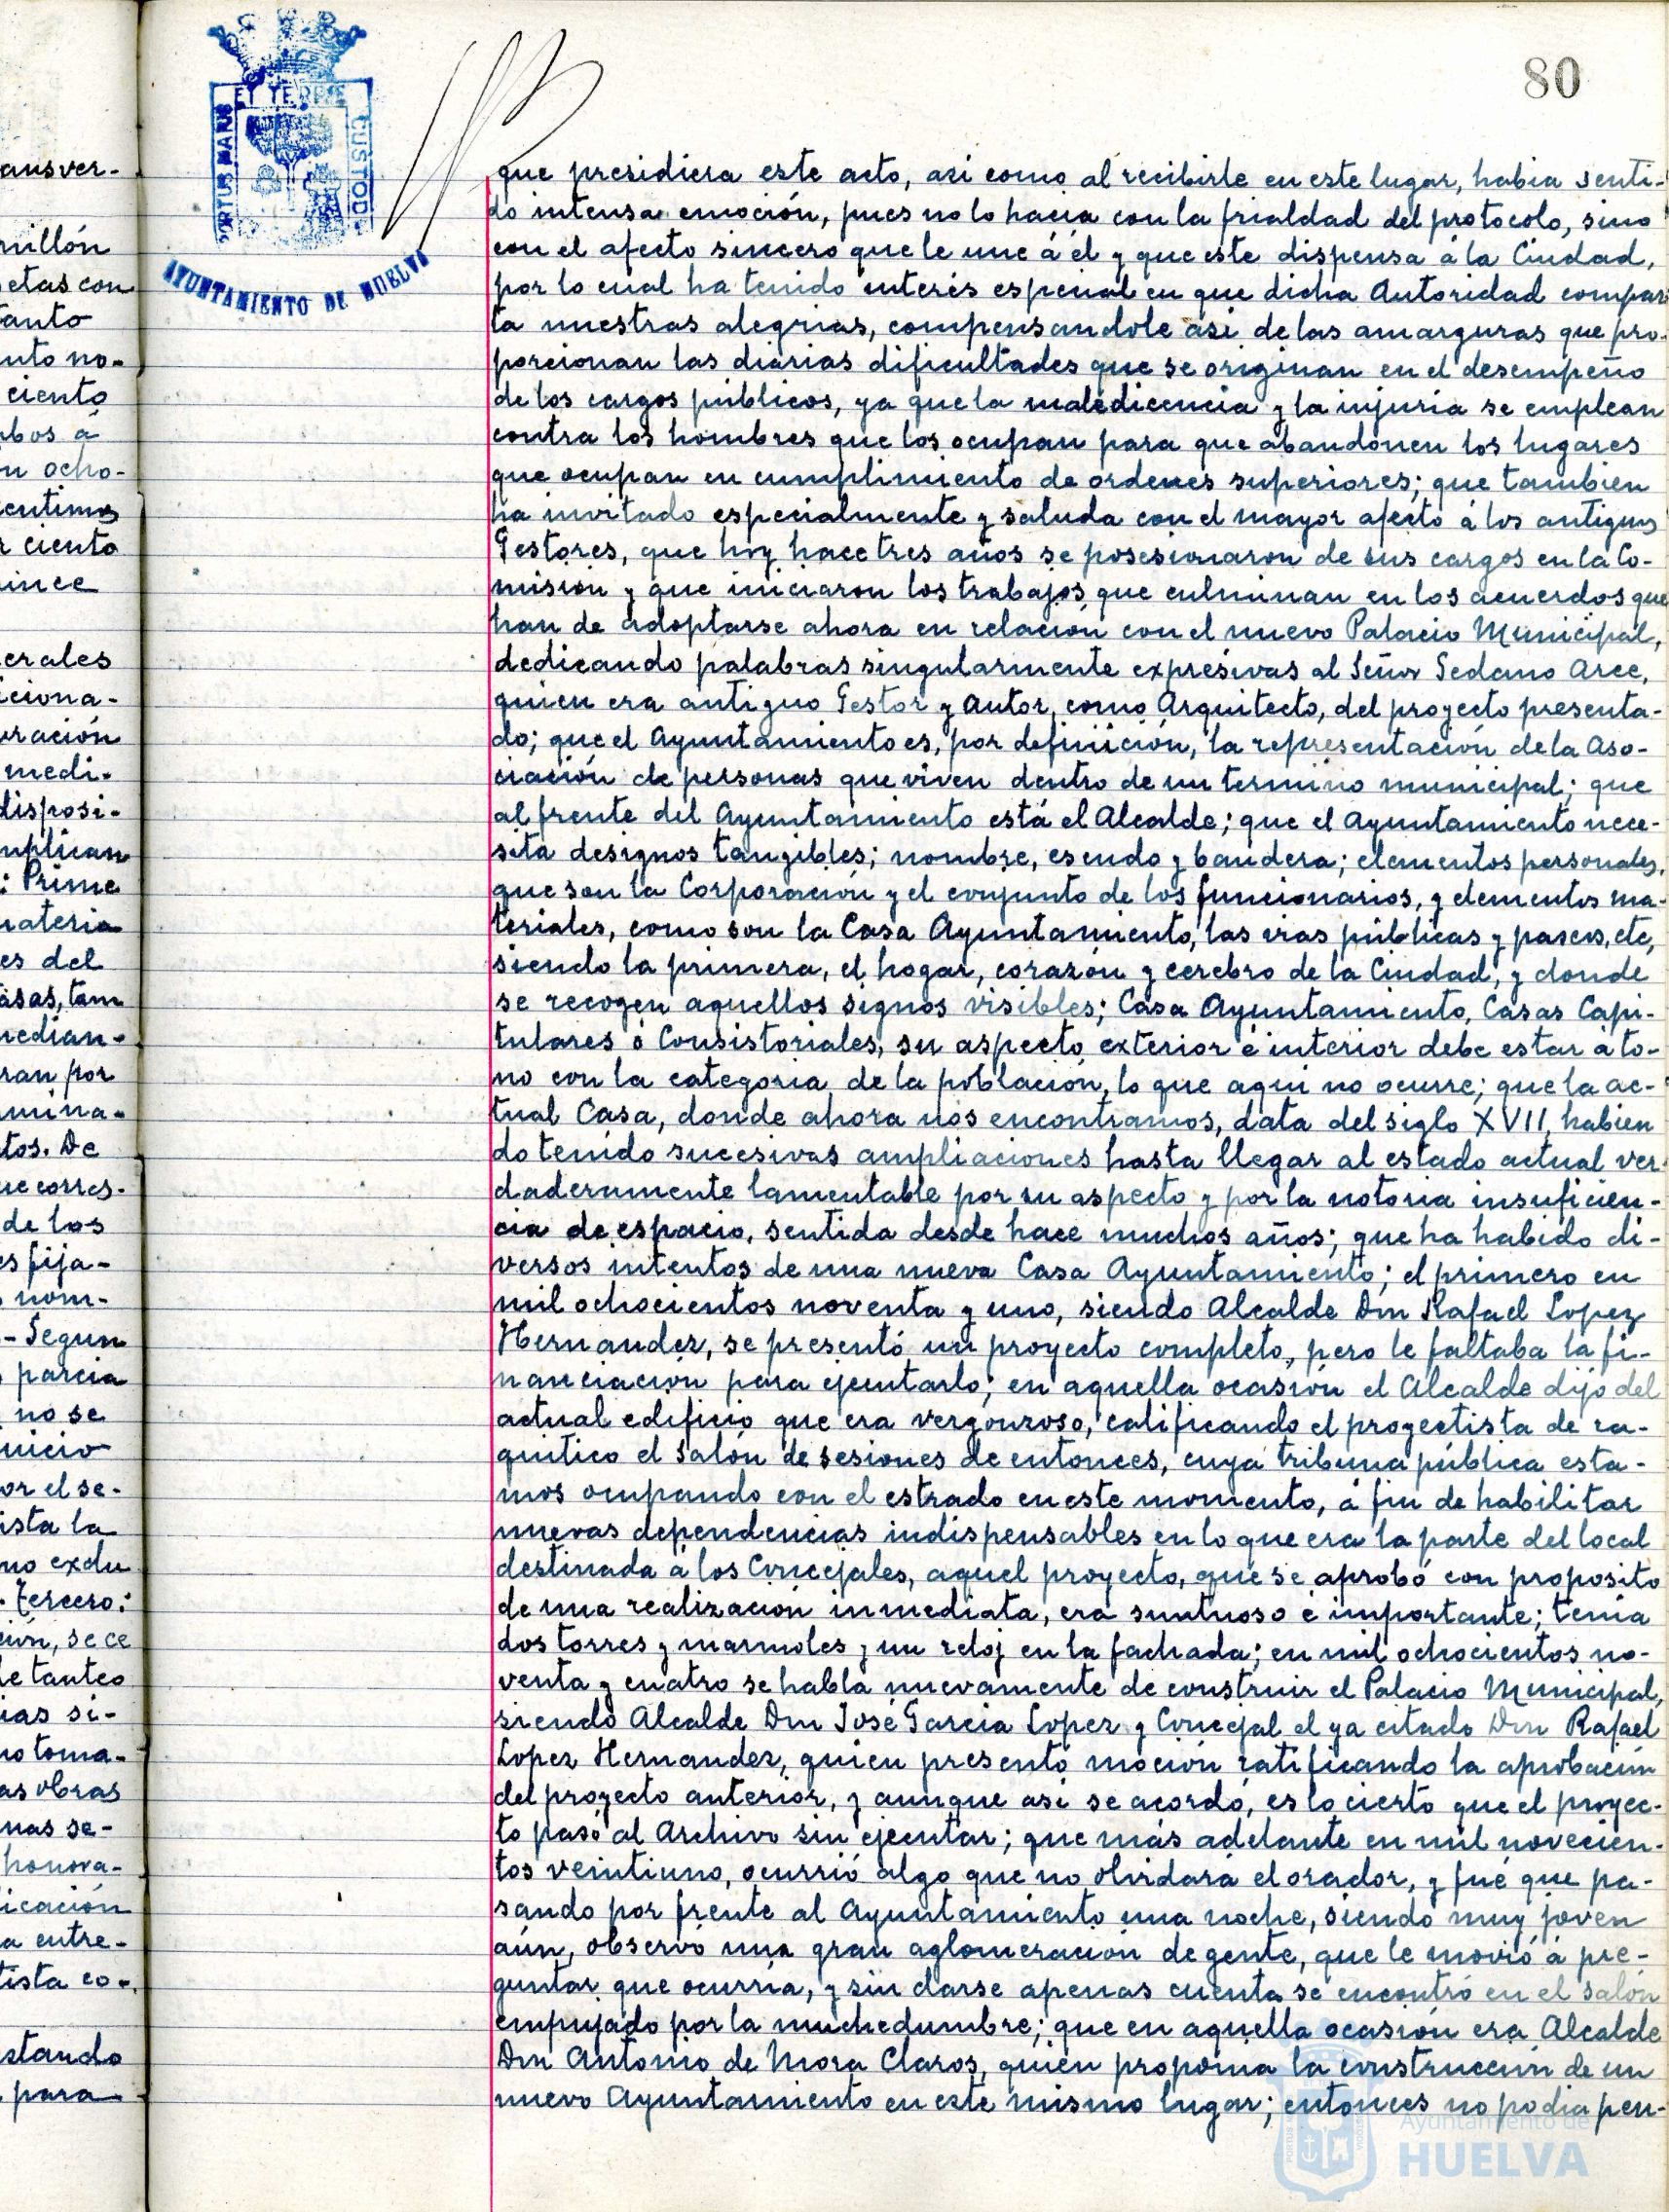 80
ET TERRE
PORTUS MARIS
CUSTODI
AYUNTAMIENTO DE HUELVA
ansver-
millón
etas con
anto
nto no-
ciento
bos á
n ocho-
centimos
r ciento
ince
erales
iciona-
ración
medi-
disposi-
mplican
: Prime
materia
es del
asas, tam
median-
ran por
mina-
tos. De
ue corres-
de los
es fija-
nom-
- Segun
parcia
no se
nicio
or el se-
ista la
mo exclu
- Tercero:
ión, se ce
de tanteo
ias si-
no toma-
as obras
nas se-
honora-
icación
a entre-
tista co-
stando
para
que presidiera este acto, asi como al recibirle en este lugar, habia senti-
do intensa emoción, pues no lo hacía con la frialdad del protocolo, sino
con el afecto sincero que le une á él y que este dispensa á la Ciudad,
por lo cual ha tenido interés especial en que dicha Autoridad compar
ta nuestras alegrias, compensandole asi de las amarguras que pro-
porcionan las diarias dificultades que se originan en el desempeño
de los cargos públicos, ya que la maledicencia y la injuria se emplean
contra los hombres que los ocupan para que abandonen los lugares
que ocupan en cumplimiento de ordenes superiores; que tambien
ha invitado especialmente y saluda con el mayor afecto á los antiguos
Gestores, que hoy hace tres años se posesionaron de sus cargos en la Co-
misión y que iniciaron los trabajos que culminan en los acuerdos que
han de adoptarse ahora en relación con el nuevo Palacio Municipal,
dedicando palabras singularmente expresivas al Señor Sedano Arce,
quien era antiguo Gestor y autor, como Arquitecto, del proyecto presenta-
do; que el Ayuntamiento es, por definición, la representación de la aso-
ciación de personas que viven dentro de un termino municipal; que
al frente del Ayuntamiento está el Alcalde; que el Ayuntamiento nece-
sita designos tangibles; nombre, escudo y bandera; elementos personales,
que son la Corporación y el conjunto de los funcionarios, y elementos ma-
teriales, como son la Casa Ayuntamiento, las vias públicas y paseos, etc,
siendo la primera, el hogar, corazón y cerebro de la Ciudad, y donde
se recogen aquellos signos visibles; Casa Ayuntamiento, Casas Capi-
tulares ó Consistoriales, su aspecto exterior é interior debe estar á to-
no con la categoria de la población, lo que aqui no ocurre; que la ac-
tual Casa, donde ahora nos encontramos, data del siglo XVII, habien
do tenido sucesivas ampliaciones hasta llegar al estado actual ver-
daderamente lamentable por su aspecto y por la notoria insuficien-
cia de espacio, sentida desde hace muchos años; que ha habido di-
versos intentos de una nueva Casa Ayuntamiento; el primero en
mil ochocientos noventa y uno, siendo Alcalde Don Rafael Lopez
Hernandez, se presentó un proyecto completo, pero le faltaba la fi-
nanciación para ejecutarlo; en aquella ocasión el Alcalde dijo del
actual edificio que era vergonzoso, calificando el proyectista de ra-
quitico el Salón de sesiones de entonces, cuya tribuna pública esta-
mos ocupando con el estrado en este momento, á fin de habilitar
nuevas dependencias indispensables en lo que era la parte del local
destinada á los Concejales, aquel proyecto, que se aprobó con proposito
de una realización inmediata, era suntuoso é importante; tenia
dos torres y marmoles y un reloj en la fachada; en mil ochocientos no-
venta y cuatro se habla nuevamente de construir el Palacio Municipal,
siendo Alcalde Don José Garcia Lopez y Concejal el ya citado Don Rafael
Lopez Hernandez, quien presentó moción ratificando la aprobación
del proyecto anterior, y aunque asi se acordó, es lo cierto que el proyec-
to pasó al Archivo sin ejecutar; que más adelante en mil novecien-
tos veintiuno, ocurrió algo que no olvidará el orador, y fué que pa-
sando por frente al Ayuntamiento una noche, siendo muy joven
aún, observó una gran aglomeración de gente, que le movió á pre-
guntar que ocurria, y sin darse apenas cuenta se encontró en el salón
empujado por la muchedumbre; que en aquella ocasión era Alcalde
Don Antonio de Mora Claros, quien proponia la construcción de un
nuevo Ayuntamiento en este mismo lugar; entonces no podia pen-
Ayuntamiento de
HUELVA